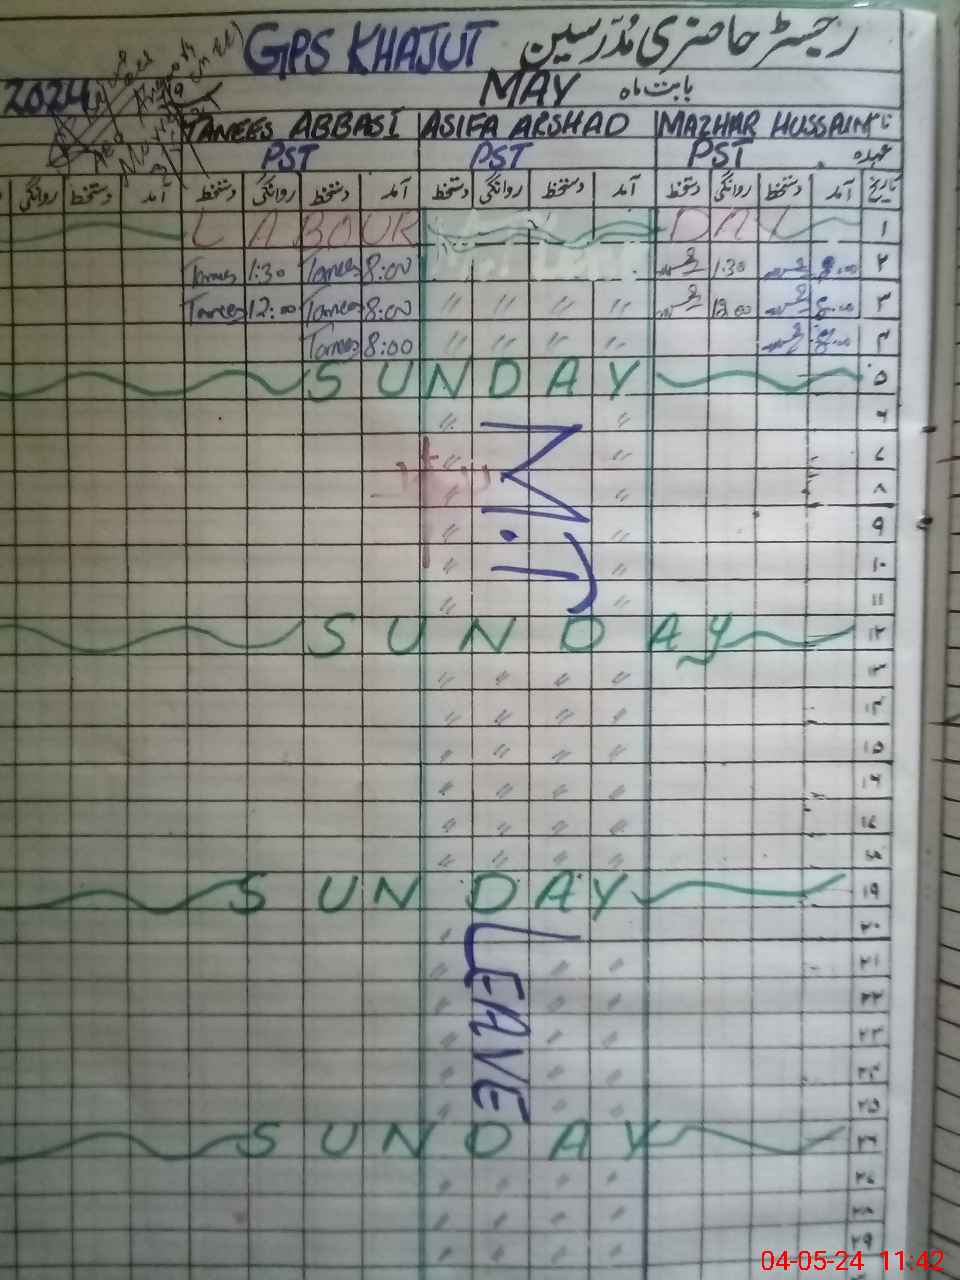 GPS KHAJUT رجسٹر حاضری مُدرّسین
2024 MAY بابت ماہ
TANEES ABBASI ASIFA ARSHAD MAZHAR HUSSAIN نام
PST PST PST عہدہ
روانگی دستخط آمد دستخط روانگی دستخط آمد دستخط روانگی دستخط آمد دستخط روانگی دستخط آمد تاریخ
LABOUR DAY ۱
Tanees 1:30 Tanees 8:00 1:30 8:00 ۲
Tanees 12:00 Tanees 8:00 〃 〃 〃 〃 12:00 8:00 ۳
Tanees 8:00 〃 〃 〃 〃 8:00 ۴
SUNDAY ۵
〃 〃 ۶
〃 〃 ۷
〃 〃 ۸
〃 〃 ۹
〃 〃 ۱۰
〃 〃 ۱۱
M.T
SUNDAY ۱۲
〃 〃 〃 〃 ۱۳
〃 〃 〃 〃 ۱۴
〃 〃 〃 〃 ۱۵
〃 〃 〃 〃 ۱۶
〃 〃 〃 〃 ۱۷
〃 〃 〃 〃 ۱۸
SUNDAY ۱۹
〃 ۲۰
〃 〃 〃 ۲۱
〃 〃 〃 ۲۲
〃 〃 〃 ۲۳
〃 〃 〃 ۲۴
〃 〃 〃 ۲۵
LEAVE
SUNDAY ۲۶
〃 〃 〃 〃 ۲۷
〃 〃 〃 〃 ۲۸
〃 〃 〃 〃 ۲۹
04-05-24 11:42